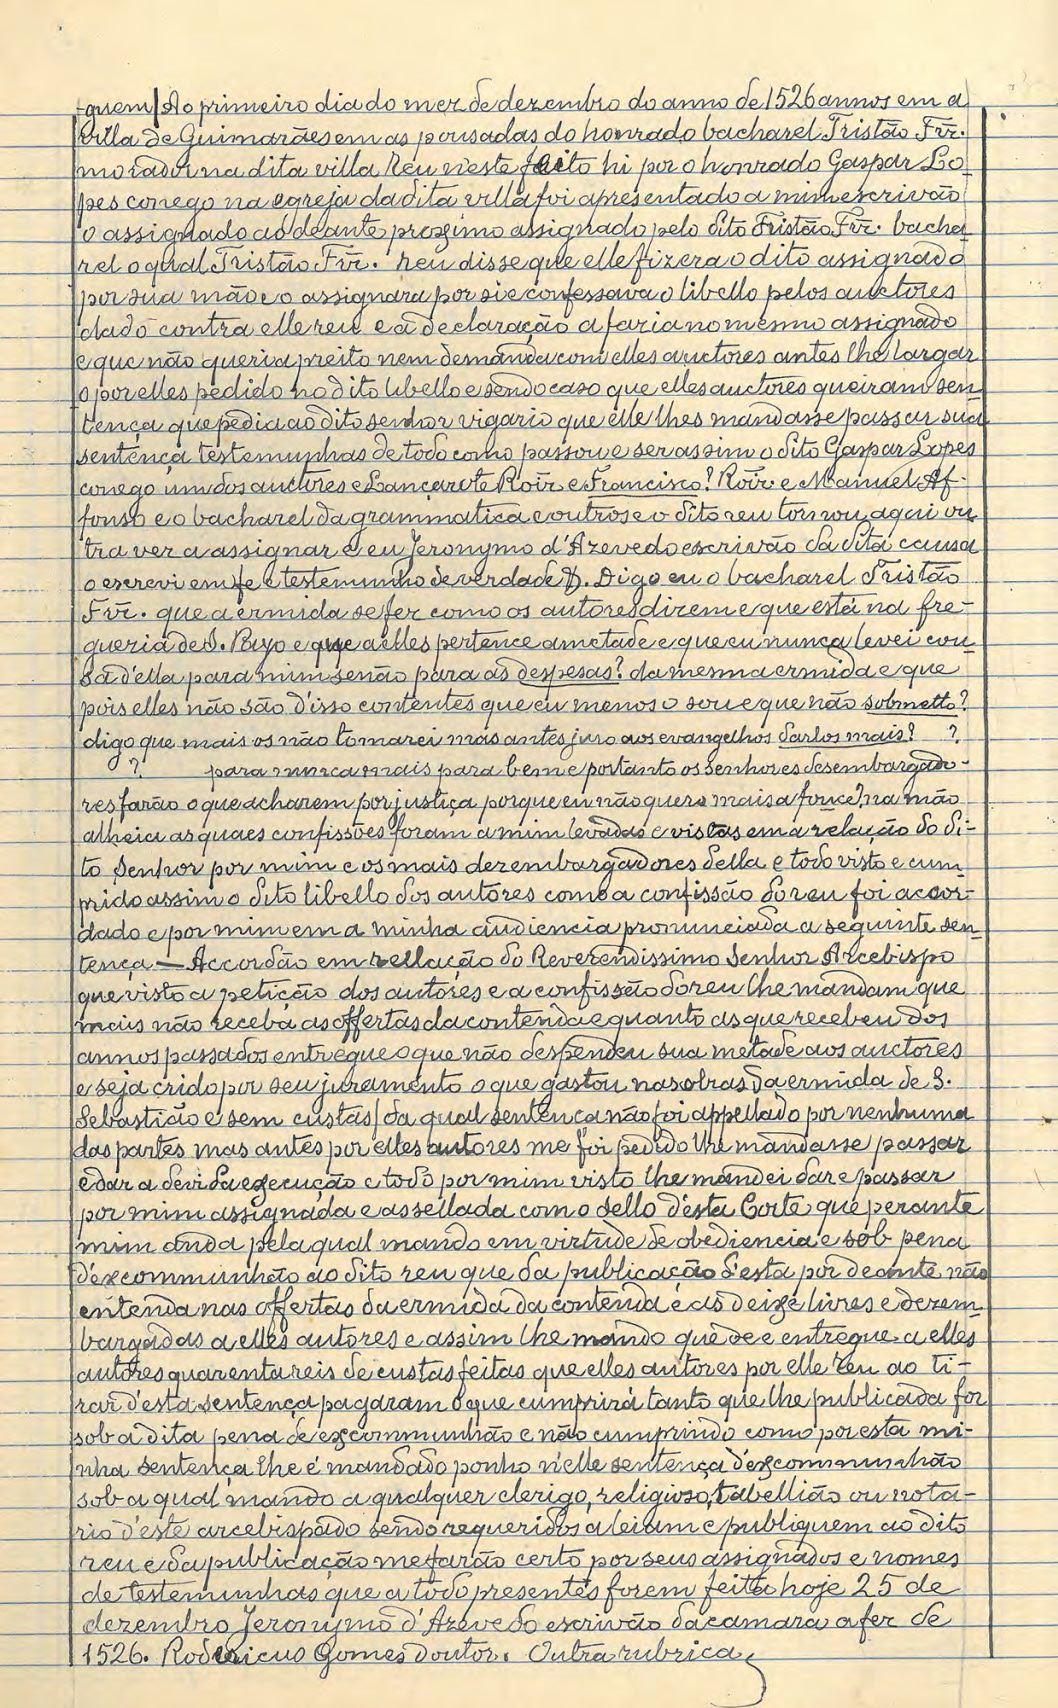 -guem/Ao primeiro dia do mez de dezembro do anno de 1526 annos em a
villa de Guimarães em as pousadas do honrado bacharel Tristão Frz.
morador na dita villa reu n'este feito hi por o honrado Gaspar Lo-
pes conego na egreja da dita villa foi apresentado a mim escrivão
o assignado ao deante proximo assignado pelo dito Tristão Frz. bacha-
rel o qual Tristão Frz. reu disse que elle fizera o dito assignado
por sua mão e o assignara por si e confessava o libello pelos auctores
dado contra elle reu e a declaração a faria no mesmo assignado
e que não queria preito nem demanda com elles auctores antes lhe largar
o por elles pedido no dito libello e sendo caso que elles auctores queiram sen-
tença que pedia ao dito senhor vigario que elle lhes mandasse passar sua
sentença testemunhas de todo como passou e ser assim o dito Gaspar Lopes
conego um dos auctores e Lançarote Roiz e Francisco? Roiz e Manuel Af-
fonso e o bacharel da grammatica e outros e o dito reu tornou aqui ou-
tra vez a assignar e eu Jeronymo d'Azevedo escrivão da dita causa
o escrevi em fe e testemunho de verdade. Digo eu o bacharel Tristão
Frz. que a ermida se fez como os autores dizem e que está na fre-
guezia de S. Payo e que a elles pertence ametade e que eu nunca levei cou-
sa d'ella para mim senão para as despesas? da mesma ermida e que
pois elles não são d'isso contentes que eu menos o sou e que não sobmetto?
digo que mais os não tomarei mas antes juro aos evangelhos darlos mais? ?
? para nunca mais para bem e portanto os senhores desembargado-
res farão o que acharem por justiça porque eu não quero mais a fouce na mão
alheia as quaes confissões foram a mim levadas e vistas em a relação do di-
to Senhor por mim e os mais dezembargadores della e todo visto e cum-
prido assim o dito libello dos autores como a confissão do reu foi acor-
dado e por mim em a minha audiencia pronunciada a seguinte sen-
tença — Accordão em rellação do Reverendissimo Senhor Arcebispo
que visto a petição dos autores e a confissão do reu lhe mandam que
mais não receba as offertas da contenda e quanto as que recebeu dos
annos passados entregue o que não despendeu sua metade aos auctores
e seja crido por seu juramento o que gastou nas obras da ermida de S.
Sebastião e sem custas/ da qual sentença não foi appellado por nenhuma
das partes mas antes por elles autores me foi pedido lhe mandasse passar
e dar a devida execução e todo por mim visto lhe mandei dar e passar
por mim assignada e assellada com o sello d'esta Corte que perante
mim anda pela qual mando em virtude de obediencia e sob pena
d'excommunhão ao dito reu que da publicação d'esta por deante não
entenda nas offertas da ermida da contenda e as deixe livres e dezem-
bargadas a elles autores e assim lhe mando que dee entregue a elles
autores quarenta reis de custas feitas que elles autores por elle reu ao ti-
rar d'esta sentença pagaram o que cumprirá tanto que lhe publicada for
sob a dita pena de excommunhão e não cumprindo como por esta mi-
nha sentença lhe é mandado ponho n'elle sentença d'excommunhão
sob a qual mando a qualquer clerigo, religioso, tabellião ou nota-
rio d'este arcebispado sendo requeridos a leiam e publiquem ao dito
reu e da publicação me farão certo por seus assignados e nomes
de testemunhas que a todo presentes forem feita hoje 25 de
dezembro Jeronymo d'Azevedo escrivão da camara a fez de
1526. Rodericus Gomes doutor. Outra rubrica